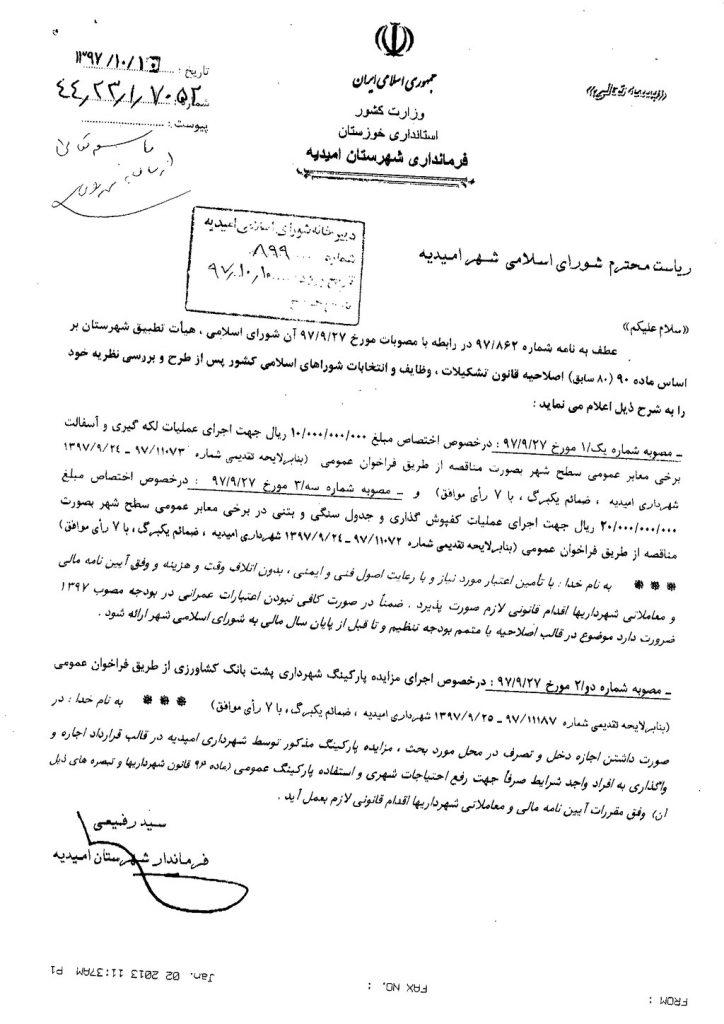 «بسمه تعالی»
جمهوری اسلامی ایران
وزارت کشور
استانداری خوزستان
فرمانداری شهرستان امیدیه
تاریخ : ۱۳۹۷/۱۰/۱۰
شماره : ۴۴,۲۳,۱,۷۰۵۲
پیوست :
دبیرخانه شورای اسلامی امیدیه
شماره ۸۹۹
تاریخ ورود ۹۷,۱۰,۱۰
ریاست محترم شورای اسلامی شهر امیدیه
«سلام علیکم»
عطف به نامه شماره ۹۷/۸۶۲ در رابطه با مصوبات مورخ ۹۷/۹/۲۷ آن شورای اسلامی ، هیأت تطبیق شهرستان بر
اساس ماده ۹۰ (۸۰ سابق) اصلاحیه قانون تشکیلات ، وظایف و انتخابات شوراهای اسلامی کشور پس از طرح و بررسی نظریه خود
را به شرح ذیل اعلام می نماید :
ـ مصوبه شماره یک/۱ مورخ ۹۷/۹/۲۷ : درخصوص اختصاص مبلغ ۱۰/۰۰۰/۰۰۰/۰۰۰ ریال جهت اجرای عملیات لکه گیری و آسفالت
برخی معابر عمومی سطح شهر بصورت مناقصه از طریق فراخوان عمومی (بنابر لایحه تقدیمی شماره ۹۷/۱۱۰۷۳ – ۱۳۹۷/۹/۲۴
شهرداری امیدیه ، ضمائم یکبرگ ، با ۷ رأی موافق) و ـ مصوبه شماره سه/۳ مورخ ۹۷/۹/۲۷ : درخصوص اختصاص مبلغ
۲۰/۰۰۰/۰۰۰/۰۰۰ ریال جهت اجرای عملیات کفپوش گذاری و جدول سنگی و بتنی در برخی معابر عمومی سطح شهر بصورت
مناقصه از طریق فراخوان عمومی (بنابر لایحه تقدیمی شماره ۹۷/۱۱۰۷۲ – ۱۳۹۷/۹/۲۴ شهرداری امیدیه ، ضمائم یکبرگ ، با ۷ رأی موافق)
*** به نام خدا : با تأمین اعتبار مورد نیاز و با رعایت اصول فنی و ایمنی ، بدون اتلاف وقت و هزینه و وفق آیین نامه مالی
و معاملاتی شهرداریها اقدام قانونی لازم صورت پذیرد . ضمناً در صورت کافی نبودن اعتبارات عمرانی در بودجه مصوب ۱۳۹۷
ضرورت دارد موضوع در قالب اصلاحیه یا متمم بودجه تنظیم و تا قبل از پایان سال مالی به شورای اسلامی شهر ارائه شود .
ـ مصوبه شماره دو/۲ مورخ ۹۷/۹/۲۷ : درخصوص اجرای مزایده پارکینگ شهرداری پشت بانک کشاورزی از طریق فراخوان عمومی
(بنابر لایحه تقدیمی شماره ۹۷/۱۱۱۸۷ – ۱۳۹۷/۹/۲۵ شهرداری امیدیه ، ضمائم یکبرگ ، با ۷ رأی موافق) *** به نام خدا : در
صورت داشتن اجازه دخل و تصرف در محل مورد بحث ، مزایده پارکینگ مذکور توسط شهرداری امیدیه در قالب قرارداد اجاره و
واگذاری به افراد واجد شرایط صرفاً جهت رفع احتیاجات شهری و استفاده پارکینگ عمومی (ماده ۹۶ قانون شهرداریها و تبصره های ذیل
آن) وفق مقررات آیین نامه مالی و معاملاتی شهرداریها اقدام قانونی لازم بعمل آید .
سید رفیعی
فرماندار شهرستان امیدیه
FROM : FAX NO. : Jan. 02 2013 11:37AM P1